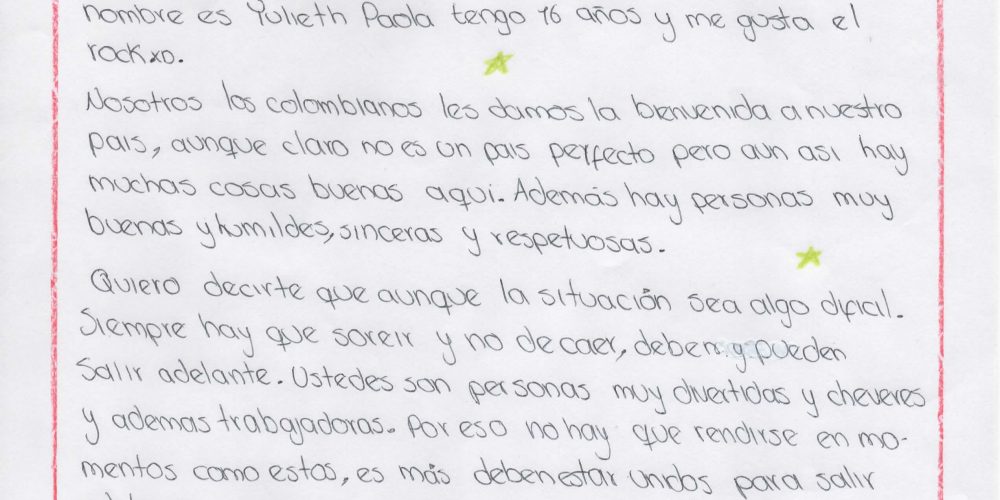 nombre es Yulieth Paola tengo 16 años y me gusta el
rock xD.
Nosotros los colombianos les damos la bienvenida a nuestro
pais, aunque claro no es un pais perfecto pero aun asi hay
muchas cosas buenas aqui. Además hay personas muy
buenas y humildes, sinceras y respetuosas.
Quiero decirte que aunque la situación sea algo dificil.
Siempre hay que soreir y no decaer, deben y pueden
Salir adelante. Ustedes son personas muy divertidas y cheveres
y ademas trabajadoras. Por eso no hay que rendirse en mo-
mentos como estos, es más deben estar unidos para salir